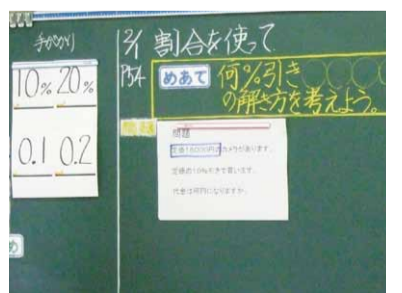 手がかり
10% 20%
0.1 0.2
2/1 割合を使って
P54
めあて 何%引き
の解き方を考えよう。
問題
問題
定価18000円のカメラがあります。
定価の10%引きで買います。
代金は何円になりますか。
め